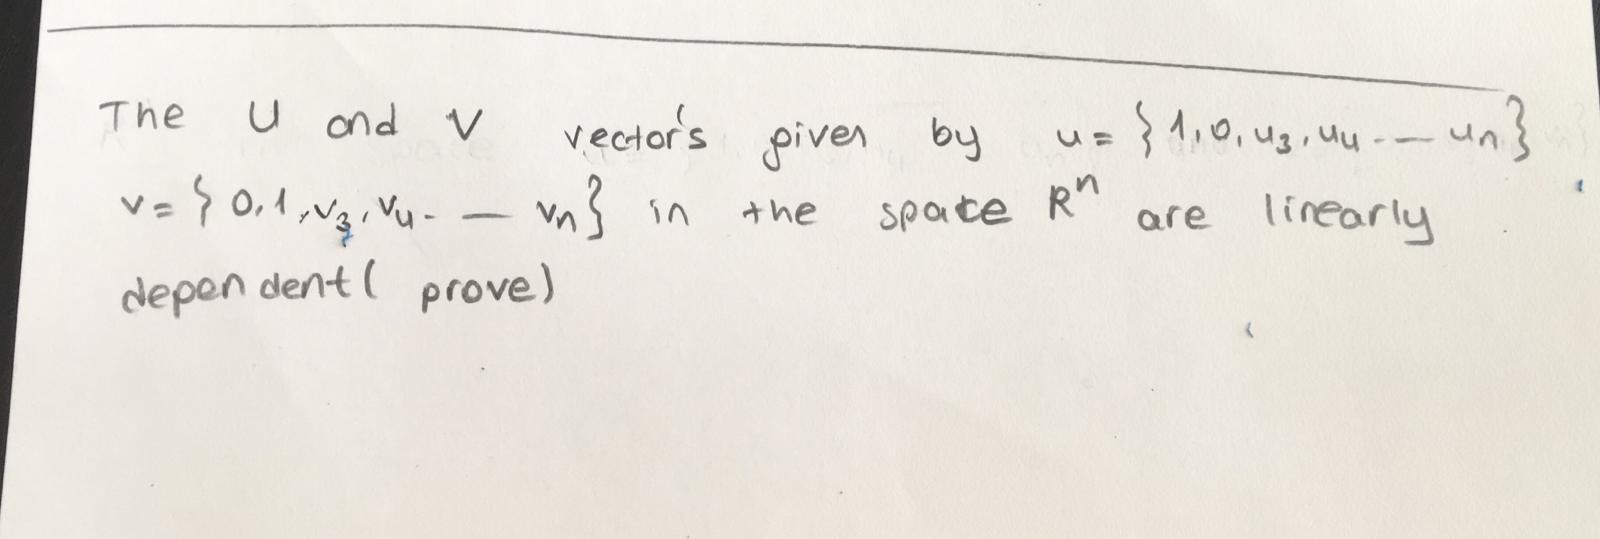 The U and V vector's given by u= {1,0,u3,u4.-— un}
v= {0,1,v3,v4-— vn} in the space Rⁿ are linearly
dependent( prove)